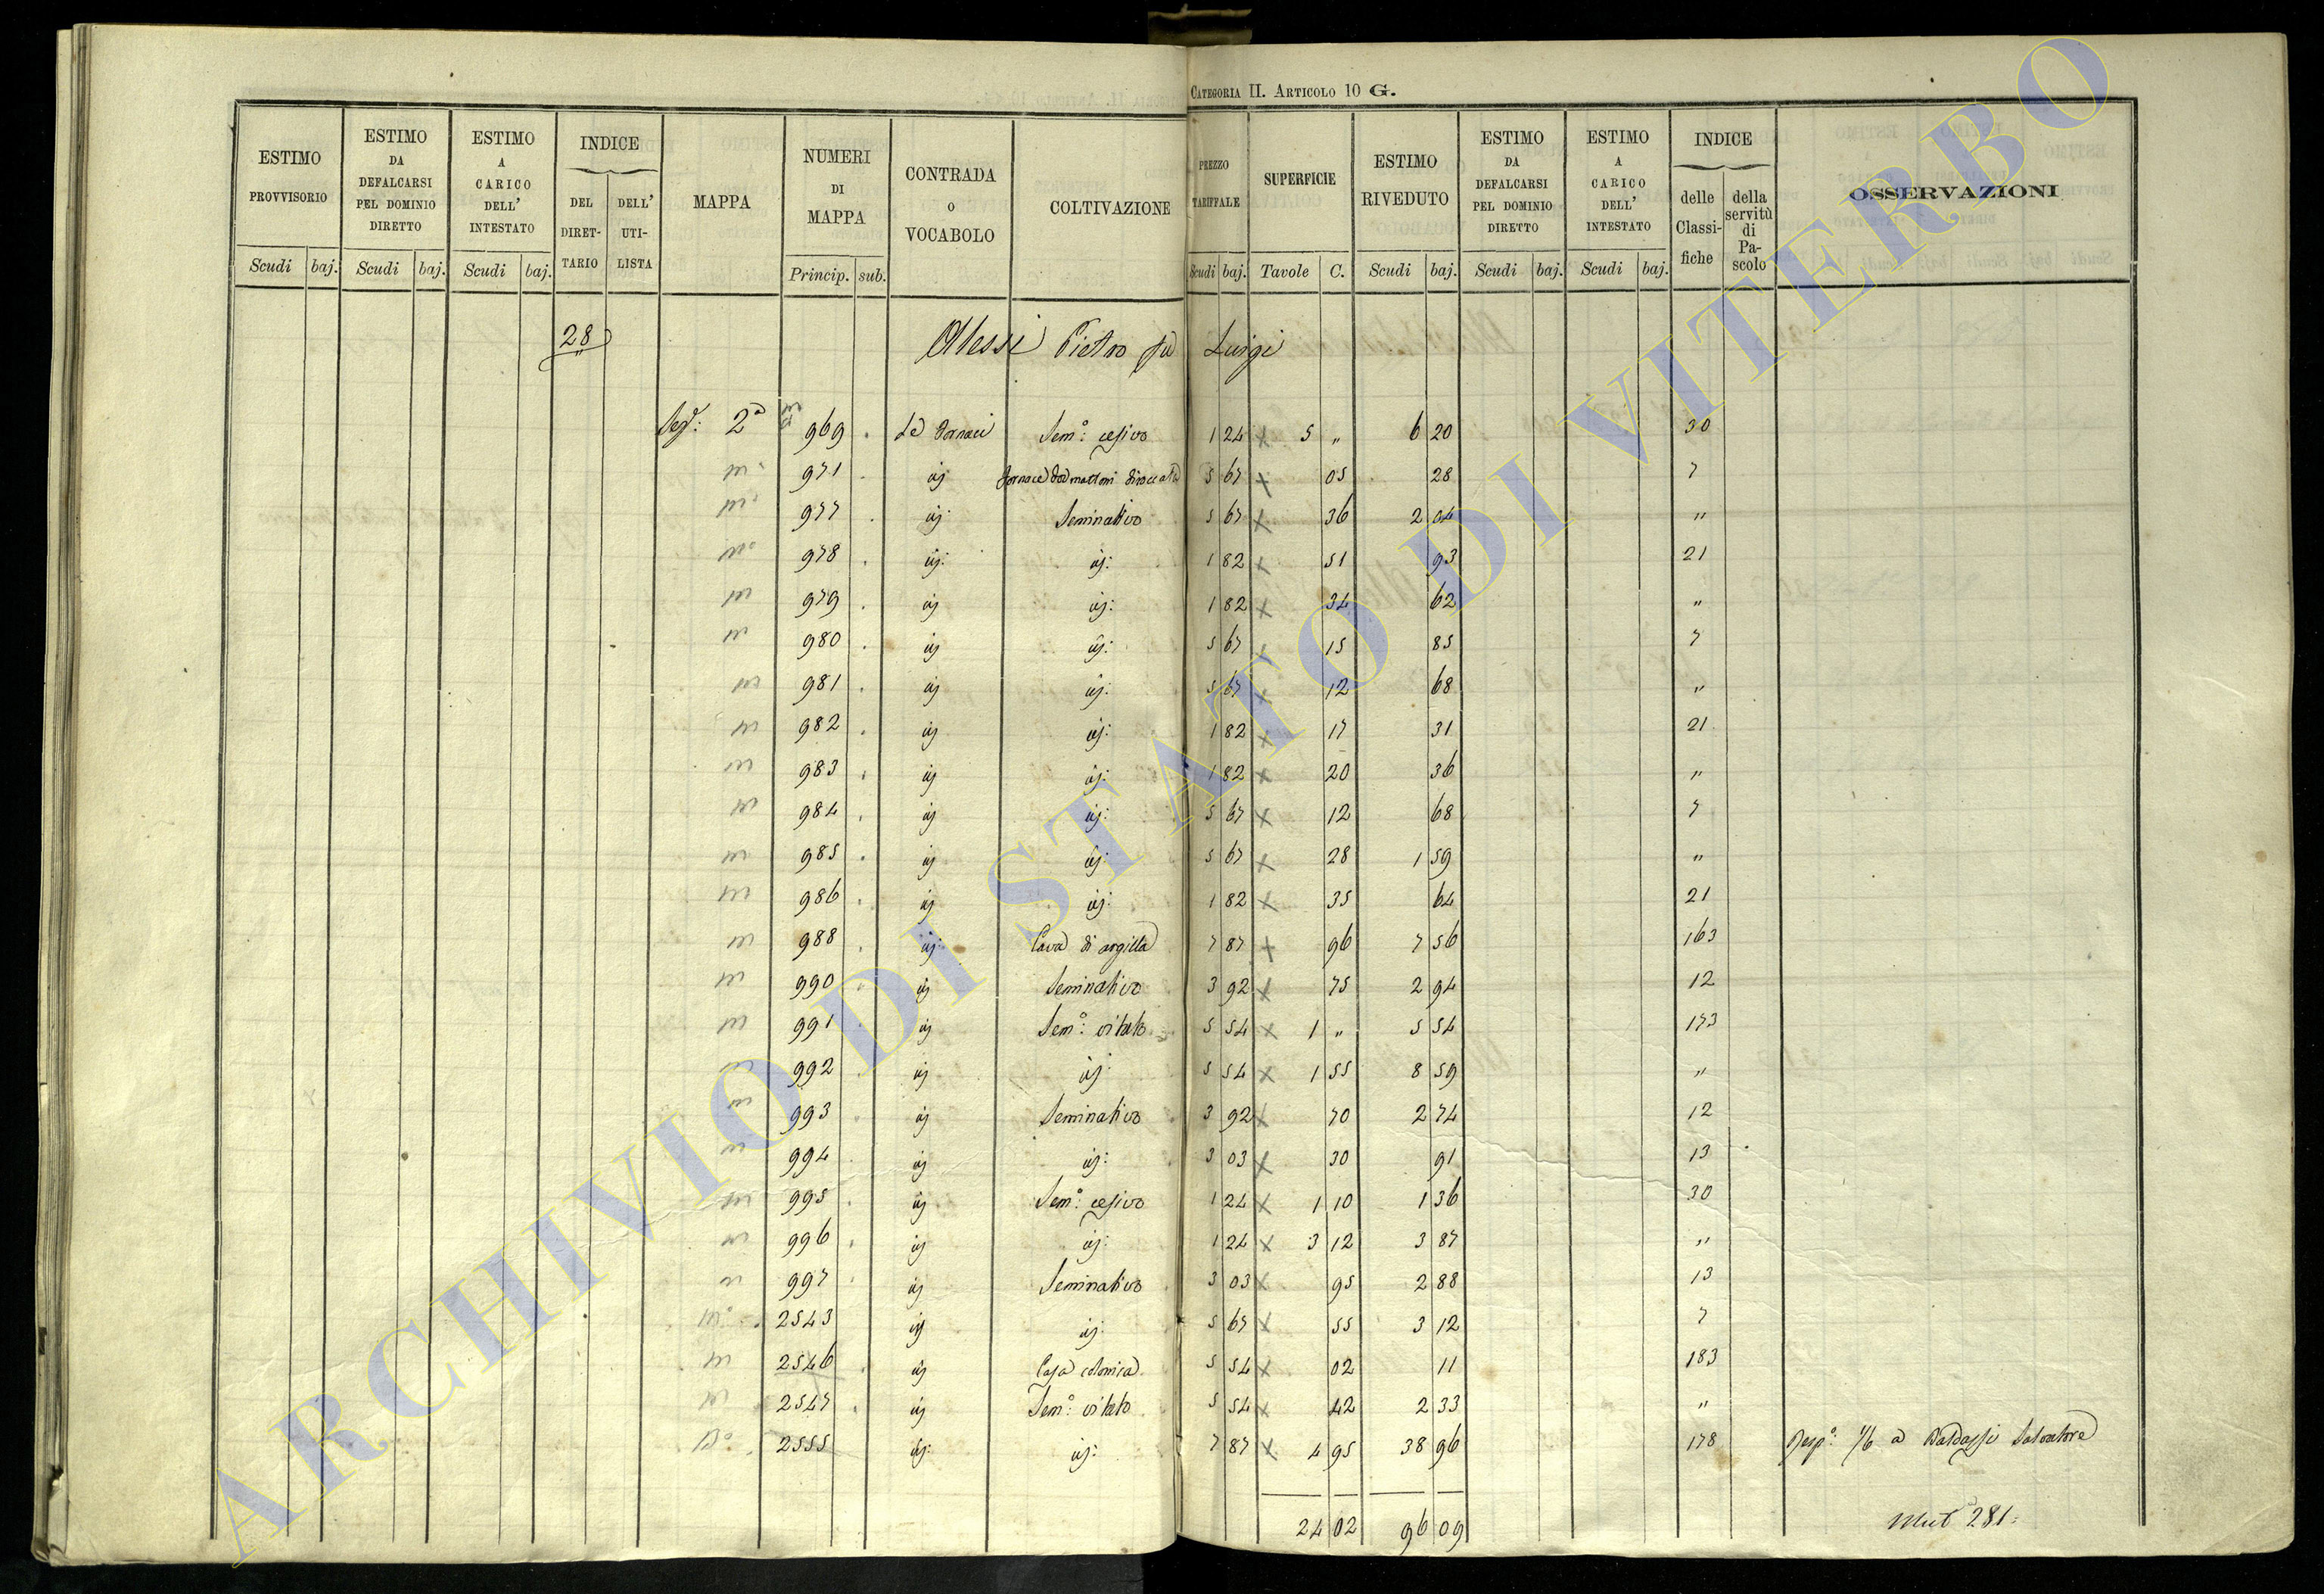 CATEGORIA II. ARTICOLO 10 G.
ESTIMO PROVVISORIO Scudi baj. ESTIMO DA DEFALCARSI PEL DOMINIO DIRETTO Scudi baj. ESTIMO A CARICO DELL' INTESTATO Scudi baj. INDICE DEL DIRET-TARIO DELL' UTI-LISTA MAPPA NUMERI DI MAPPA Princip. sub. CONTRADA O VOCABOLO COLTIVAZIONE PREZZO TARIFFALE Scudi baj. SUPERFICIE Tavole C. ESTIMO RIVEDUTO Scudi baj. ESTIMO DA DEFALCARSI PEL DOMINIO DIRETTO Scudi baj. ESTIMO A CARICO DELL' INTESTATO Scudi baj. INDICE delle Classi-fiche della servitù di Pa-scolo OSSERVAZIONI
28 Alessi Pietro fu Luigi
2ª 969 Le Fornaci Sem°: cesivo 1 24 x 5 " 6 20 30
m 971 id Fornace da mattoni diroccata 5 67 x 05 28 7
m 977 id: Seminativo 5 67 x 36 2 04 "
m 978 id: id: 1 82 x 51 93 21
m 979 id id: 1 82 x 34 62 "
m 980 id id: 5 67 x 15 85 7
m 981 id id: 5 67 x 12 68 "
m 982 id id: 1 82 x 17 31 21
m 983 id id: 1 82 x 20 36 "
m 984 id id: 5 67 x 12 68 7
m 985 id id: 5 67 x 28 1 59 "
m 986 id id: 1 82 x 35 64 21
m 988 id: Cava di argilla 7 87 x 96 7 56 163
m 990 id Seminativo 3 92 x 75 2 94 12
m 991 id Sem°: vitato 5 54 x 1 " 5 54 173
m 992 id id: 5 54 x 1 55 8 59 "
m 993 id Seminativo 3 92 x 70 2 74 12
m 994 id id: 3 03 x 30 91 13
m 995 id Sem°: cesivo 1 24 x 1 10 1 36 30
m 996 id id: 1 24 x 3 12 3 87 "
m 997 id Seminativo 3 03 x 95 2 88 13
m 2543 id id: 5 67 x 55 3 12 7
m 2546 id Casa colonica 5 54 x 02 11 183
m 2547 id Sem°: vitato 5 54 x 42 2 33 "
2555 id: id: 7 87 x 4 95 38 96 178 1/6 a Baldassi Salvatore
24 02 96 09 281
ARCHIVIO DI STATO DI VITERBO